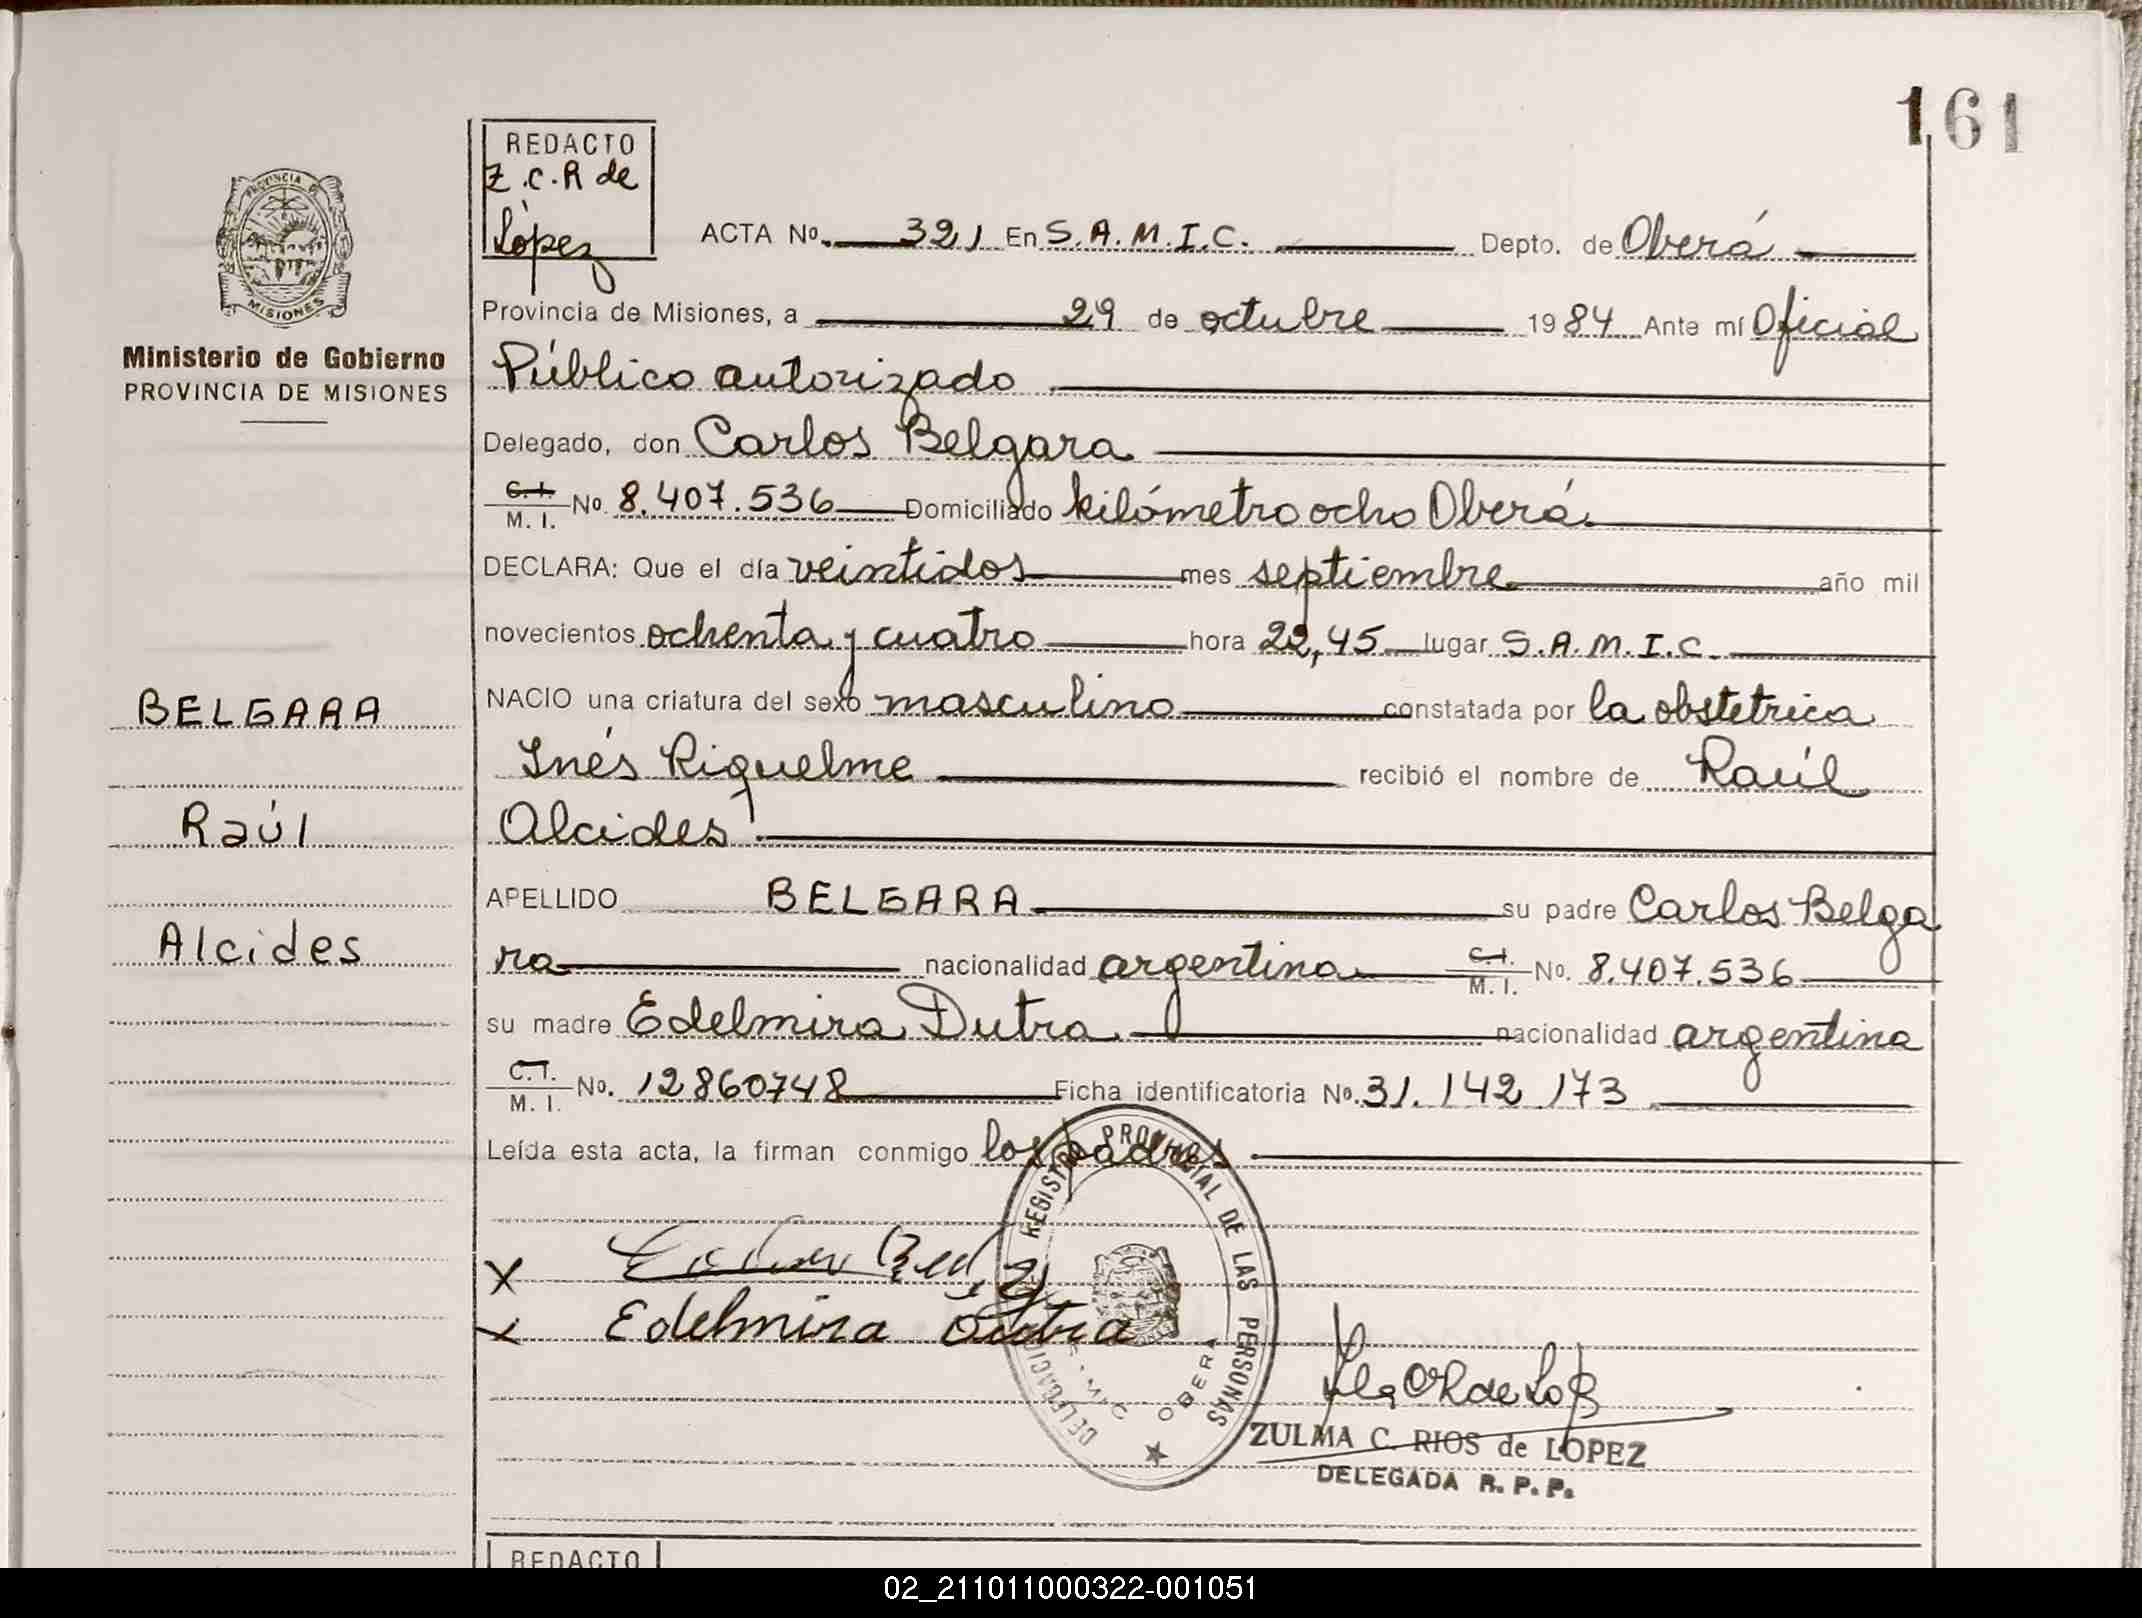 161
REDACTO
Z.C.R de
López
ACTA No. 321 En S.A.M.I.C. Depto. de Oberá
Provincia de Misiones, a 29 de octubre 1984 Ante mí Oficial
Público autorizado
Delegado, don Carlos Belgara
C.I. M.I. No. 8.407.536 Domiciliado kilómetro ocho Oberá.
DECLARA: Que el día veintidos mes septiembre año mil
novecientos ochenta y cuatro hora 22,45 lugar S.A.M.I.C.
NACIO una criatura del sexo masculino constatada por la obstetrica
Inés Riquelme recibió el nombre de Raúl
Alcides
APELLIDO BELGARA su padre Carlos Belga
ra nacionalidad argentina C.I. M.I. No. 8.407.536
su madre Edelmira Dutra nacionalidad argentina
C.I. M.I. No. 12860748 Ficha identificatoria No. 31.142.173
Leída esta acta, la firman conmigo los padres
X
Edelmira Dutra
REGISTRO PROVINCIAL DE LAS PERSONAS
DELEGACION
OBERA
ZULMA C. RIOS de LOPEZ
DELEGADA R. P. P.
PROVINCIA DE
MISIONES
Ministerio de Gobierno
PROVINCIA DE MISIONES
BELGARA
Raúl
Alcides
REDACTO
02_211011000322-001051